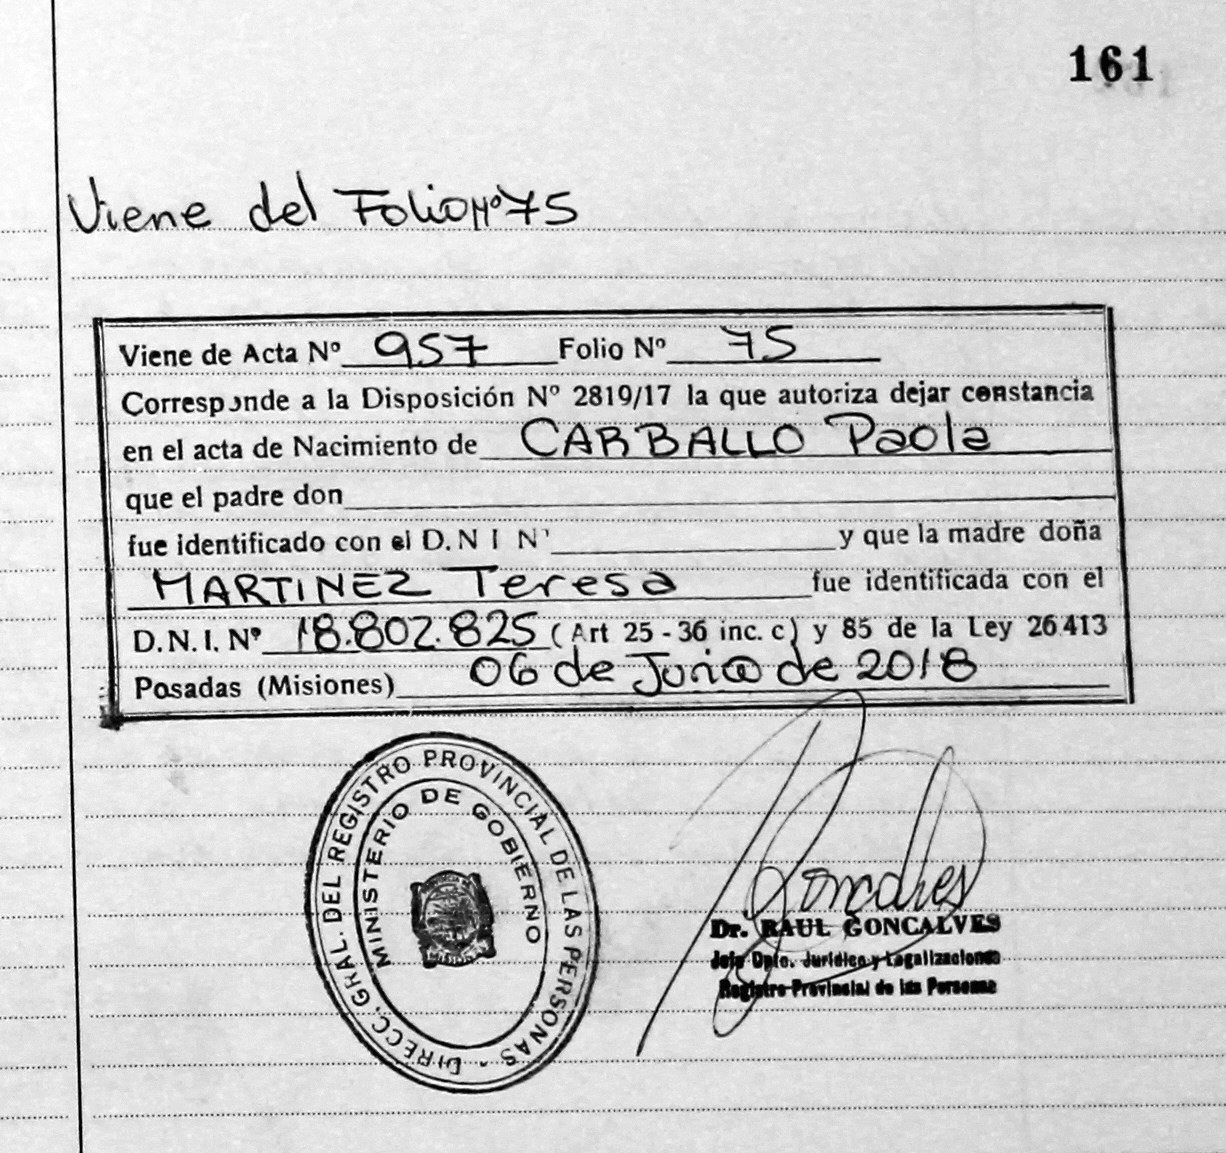 161
Viene del Folio Nº 75
Viene de Acta Nº 957 Folio Nº 75
Corresponde a la Disposición Nº 2819/17 la que autoriza dejar constancia
en el acta de Nacimiento de CARBALLO Paola
que el padre don
fue identificado con el D.N I N' y que la madre doña
MARTINEZ Teresa fue identificada con el
D.N.I. Nº 18.802.825 (Art 25-36 inc. c) y 85 de la Ley 26.413
Posadas (Misiones) 06 de Junio de 2018
DIRECC. GRAL. DEL REGISTRO PROVINCIAL DE LAS PERSONAS
MINISTERIO DE GOBIERNO
Goncalves
Dr. RAUL GONCALVES
Jefe Dpto. Jurídico y Legalizaciones
Registro Provincial de las Personas